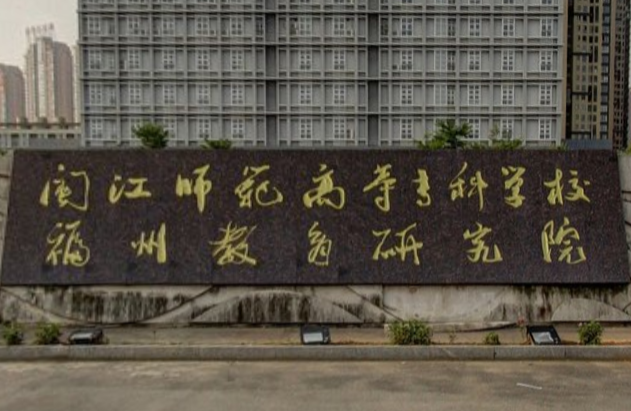 闽江师范高等专科学校
福州教育研究院